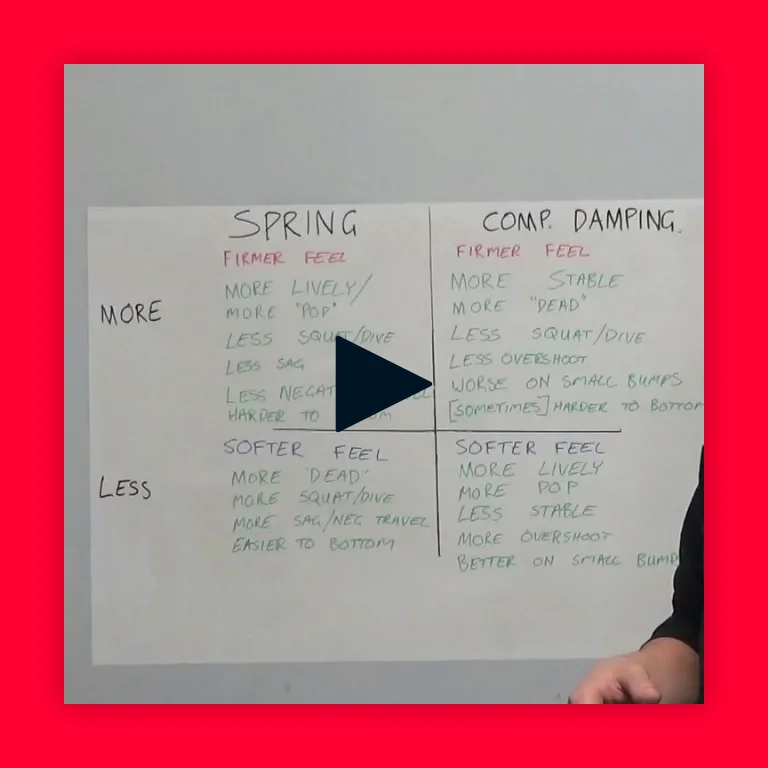 SPRING
COMP. DAMPING.
MORE
FIRMER FEEL
MORE LIVELY/
MORE "POP"
LESS SQUAT/DIVE
LESS SAG
LESS
HARDER TO
FIRMER FEEL
MORE STABLE
MORE "DEAD"
LESS SQUAT/DIVE
LESS OVERSHOOT
WORSE ON SMALL BUMPS
[SOMETIMES] HARDER TO BOTTOM
LESS
SOFTER FEEL
MORE "DEAD"
MORE SQUAT/DIVE
MORE SAG/NEG TRAVEL
EASIER TO BOTTOM
SOFTER FEEL
MORE LIVELY
MORE POP
LESS STABLE
MORE OVERSHOOT
BETTER ON SMALL BUMPS